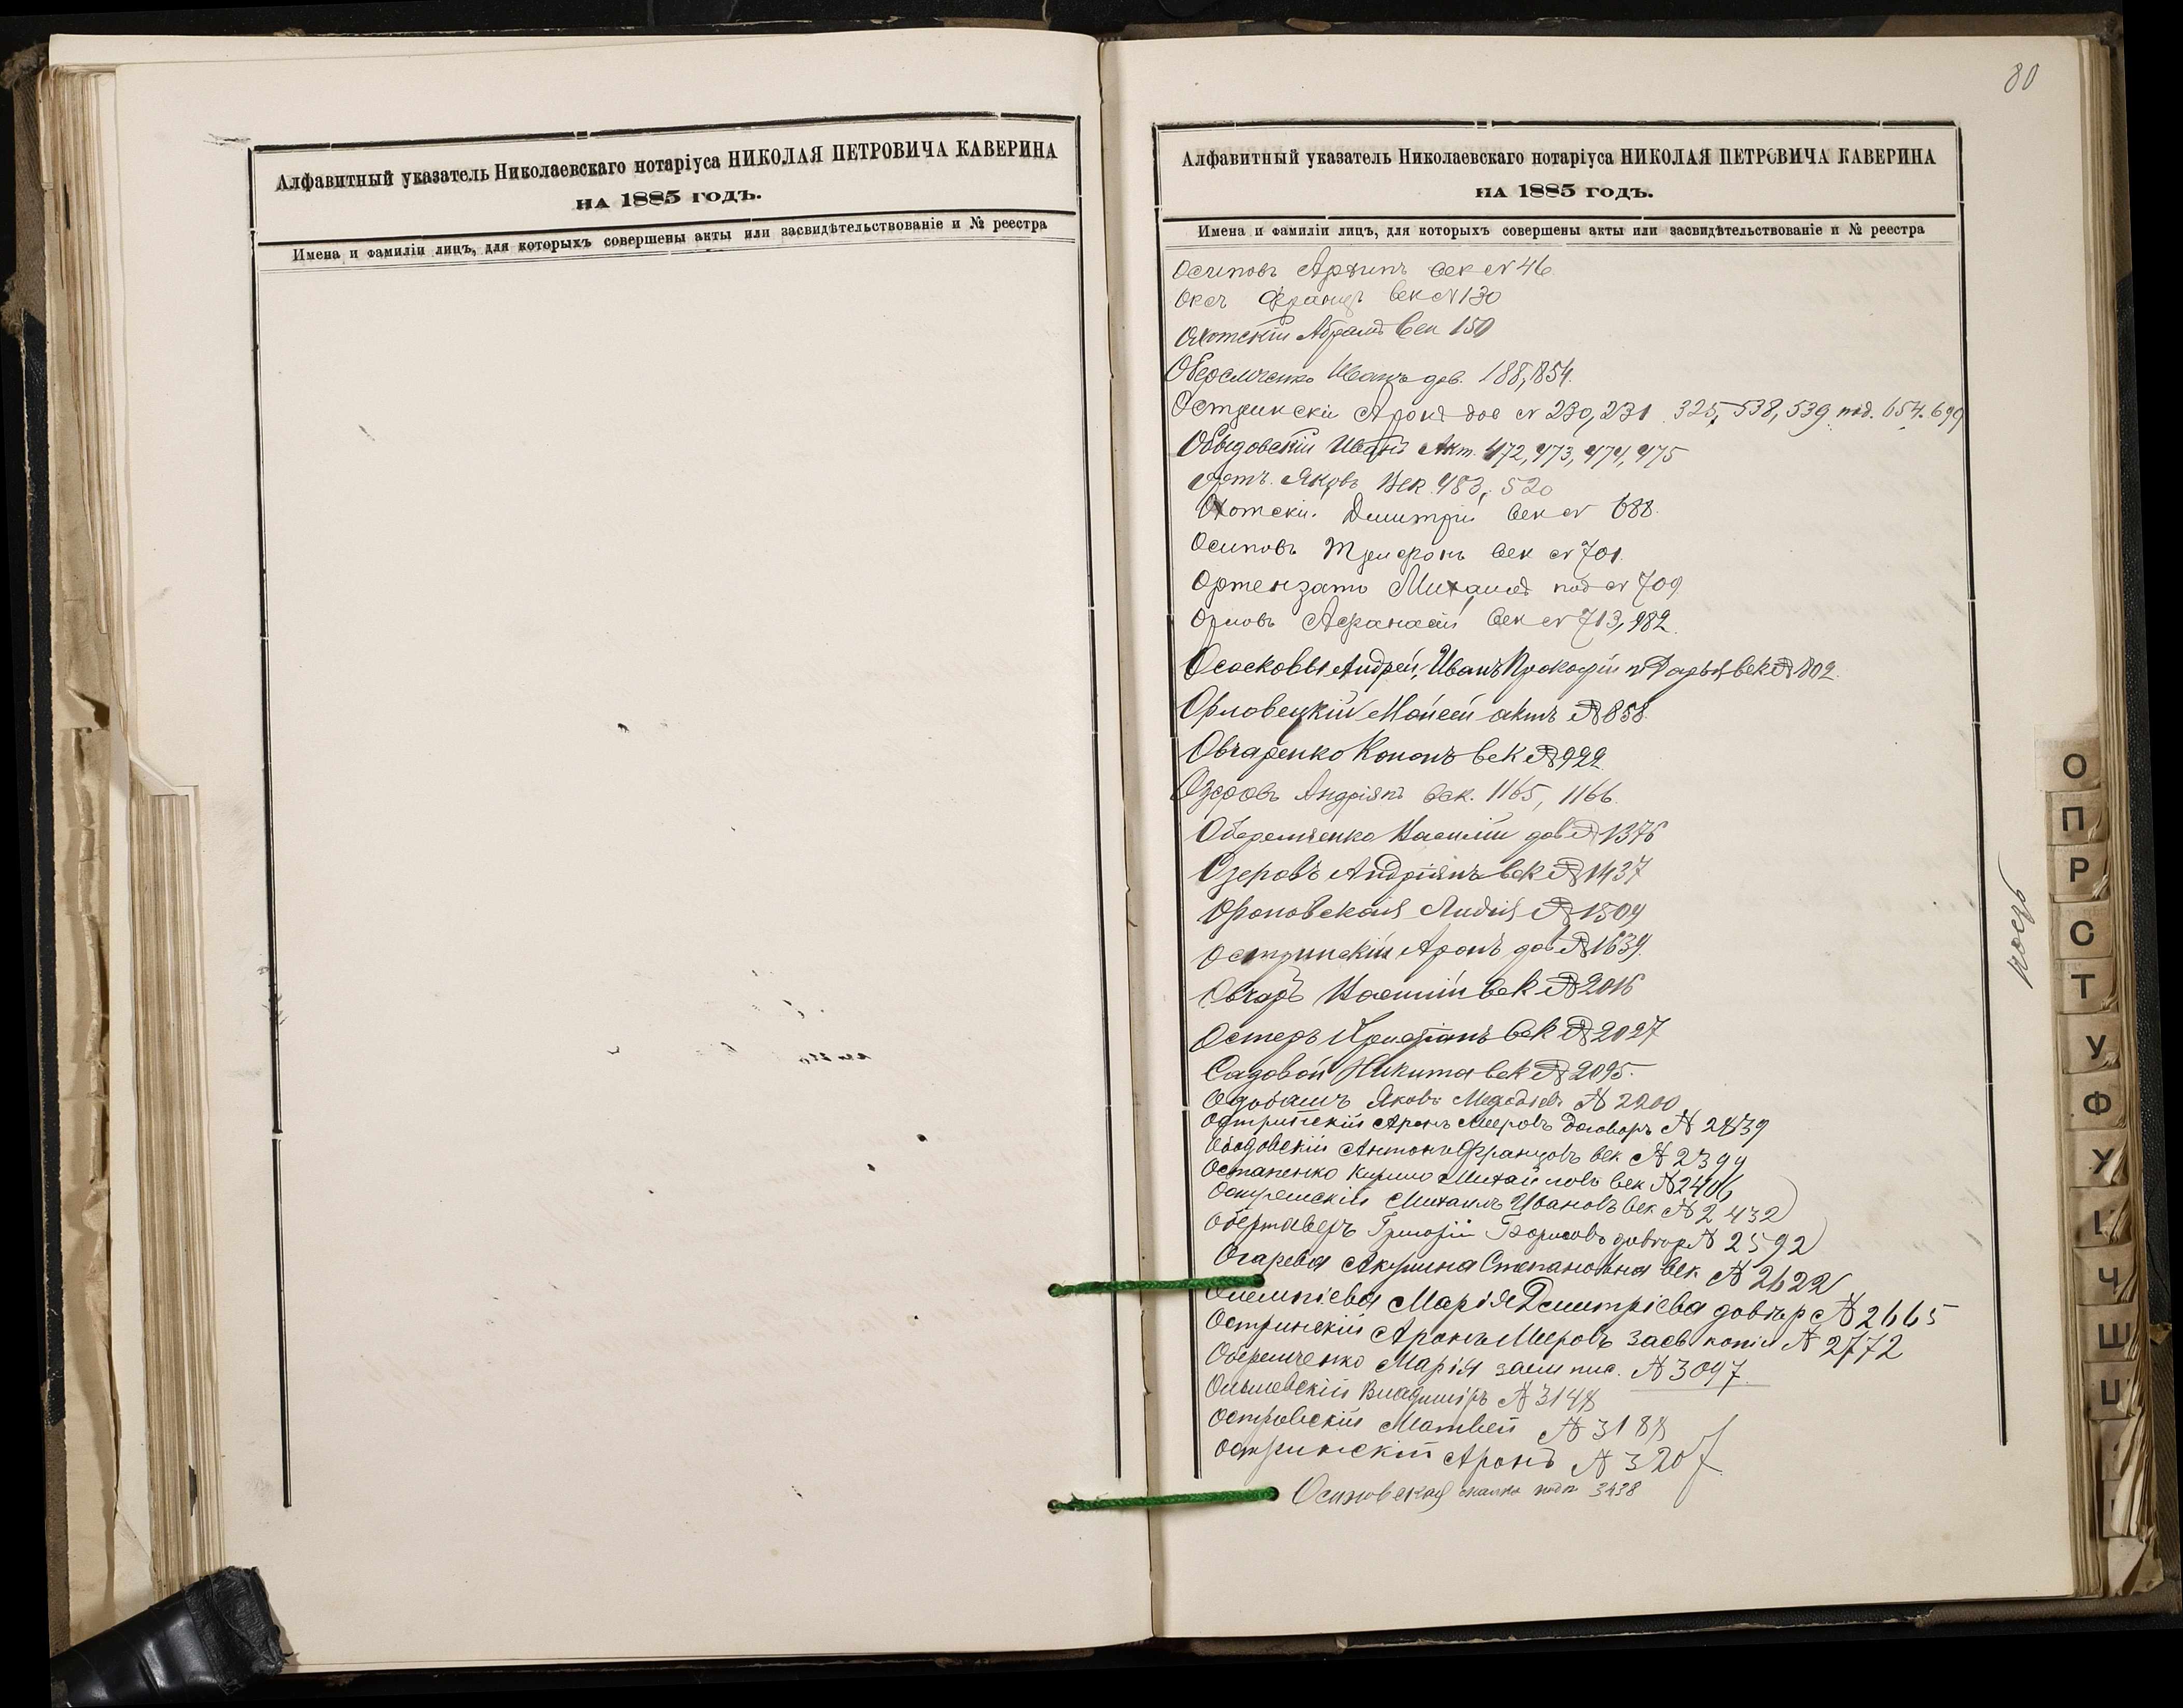 Алфавитный указатель Николаевскаго нотаріуса НИКОЛАЯ ПЕТРОВИЧА КАВЕРИНА
НА 1885 ГОДЪ.
Имена и фамиліи лицъ, для которыхъ совершены акты или засвидѣтельствованіе и № реестра
80
Алфавитный указатель Николаевскаго нотаріуса НИКОЛАЯ ПЕТРОВИЧА КАВЕРИНА
НА 1885 ГОДЪ.
Имена и фамиліи лицъ, для которыхъ совершены акты или засвидѣтельствованіе и № реестра
Осиповъ Архипъ век № 46
Оксъ Францъ век № 130
Охотскій Абрамъ век 150
Оберемченко Иванъ дов. 188, 854.
Острински Аронъ дов № 230, 231 325, 538, 539 под. 654. 699
Обыдовскій Иванъ Акт. 472, 473, 474, 475
Яковъ Век. 483, 520
Охотскій Дмитрій век № 688.
Осиповъ век № 701.
Ортензато Михаилъ под № 709
Орловъ Афанасій век № 713, 982.
Осасковы Андрей, Иванъ Прокофій и Дарья век № 802.
Орловецкій Мойсей актъ № 858.
Овчаренко Кононъ век № 922.
Озеровъ Андріянъ век. 1165, 1166.
Оберемченко Василій дов № 1376
Озеровъ Андріянъ век № 1437
Лидія № 1504
Остринскій Аронъ дов № 1639.
Овчаръ Василій век № 2016
Остеръ век № 2027
Садовой Никита век № 2095.
Одобашъ Яковъ № 2200
Остринскій Аронъ Мееровъ договоръ № 2439
Ободовскій Антонъ Францовъ век № 2394
Остапенко Кирило Михайловъ век № 2406
Михаилъ Ивановъ век № 2432
Григорій Борисовъ довѣр № 2592
Огарева Акулина Степановна век № 2622
Олемпіева Марія Дмитріева довѣр № 2665
Остринскій Аронъ Мееровъ засв. копіи № 2772
Оберемченко Марія заем пис. № 3097.
Ольшевскій Владиміръ № 3148
Островскій Матвей № 3188
Остринскій Аронъ № 3207
Осиповская подп 3438
О
П
Р
С
Т
У
Ф
Х
Ц
Ч
Ш
Щ